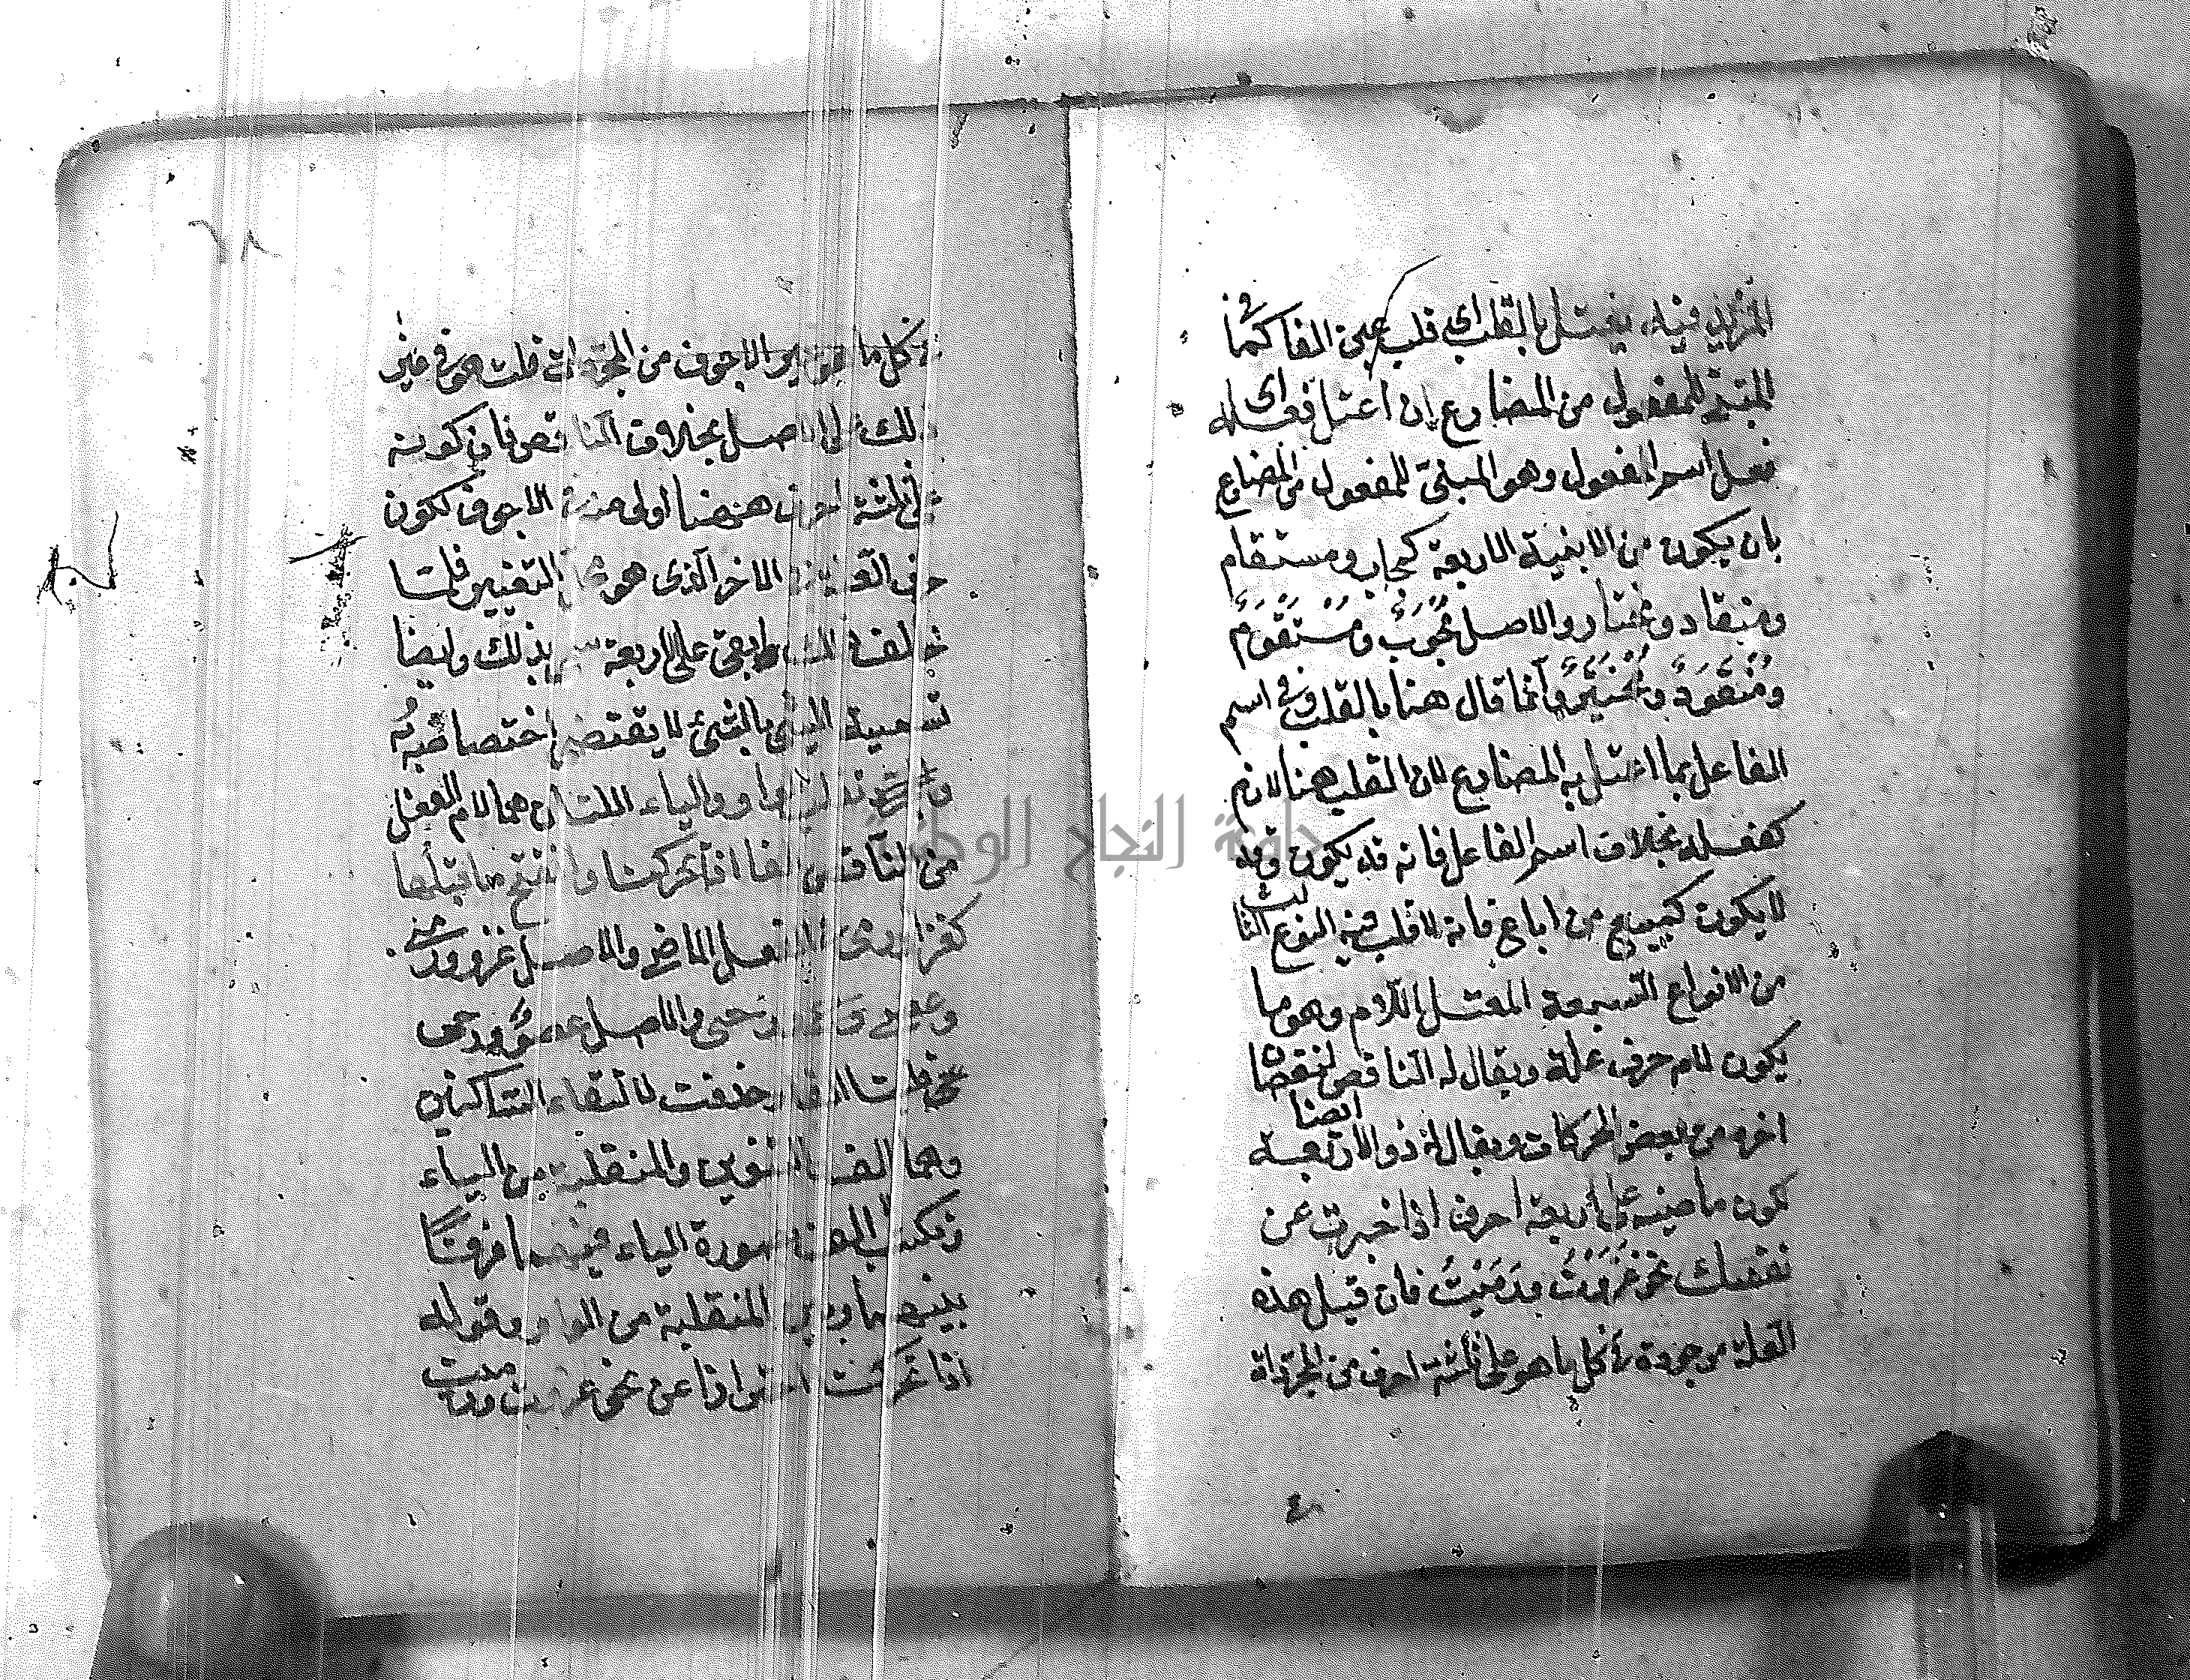 المزيد فيه يعتل بالقلب اى قلب عين الفا كما فى
المبنى للمفعول من المضارع ان اعتل فعله اى
فعل اسم المفعول وهو المبنى للمفعول من المضارع
بان يكون من الابنية الاربعة كمجاب ومستقام
ومنقاد ومختار والاصل مجوب ومستقوم
ومنقود ومختير وانما قال هنا بالقلب وفى اسم
الفاعل بما اعتل به المضارع لان القلب هنا لازم
كفعله بخلاف اسم الفاعل فانه قد يكون وقد
لا يكون كمبيع من اباع فانه لا قلب فيه النوع الثالث
من الانواع السبعة المعتل اللام وهو ما
يكون لامه حرف علة ويقال له الناقص لنقصان
اخره من بعض الحركات ويقال له ايضا ذو الاربعة
لكون ماضيه على اربعة احرف اذا خبرت عن
نفسك نحو غزوت ورميت فان قيل هذه
العلة موجودة فى كل ما هو على ثلثة احرف من المجردات
فى كل ما هو غير الاجوف من المجردات قلت هو فى غير
ذلك على الاصل بخلاف الناقص فان كونه
على ثلثة احرف ههنا اولى منه فى الاجوف لكون
حرف العلة فى الاخر الذى هو محل التغيير فلما
خالف ذلك وبقى على الاربعة سمى بذلك وايضا
تسمية الشئ بالشئ لا يقتضى اختصاصه به
الواو والياء اللتان هما لام الفعل
من الناقص الفا اذا تحركتا وانفتح ما قبلهما
كغزا ورمى للفعل الماضى والاصل غزو ورمى
وعصى ورحى والاصل عصو ورحى
قلبتا الفا وحذفت لالتقاء الساكنين
وهما الف التنوين والمنقلبة من الياء
وتكتب الفا بصورة الياء فيهما فرقا
بينهما وبين المنقلبة من الواو وقوله
اذا تحركت احترازا عن نحو غزوت ورميت